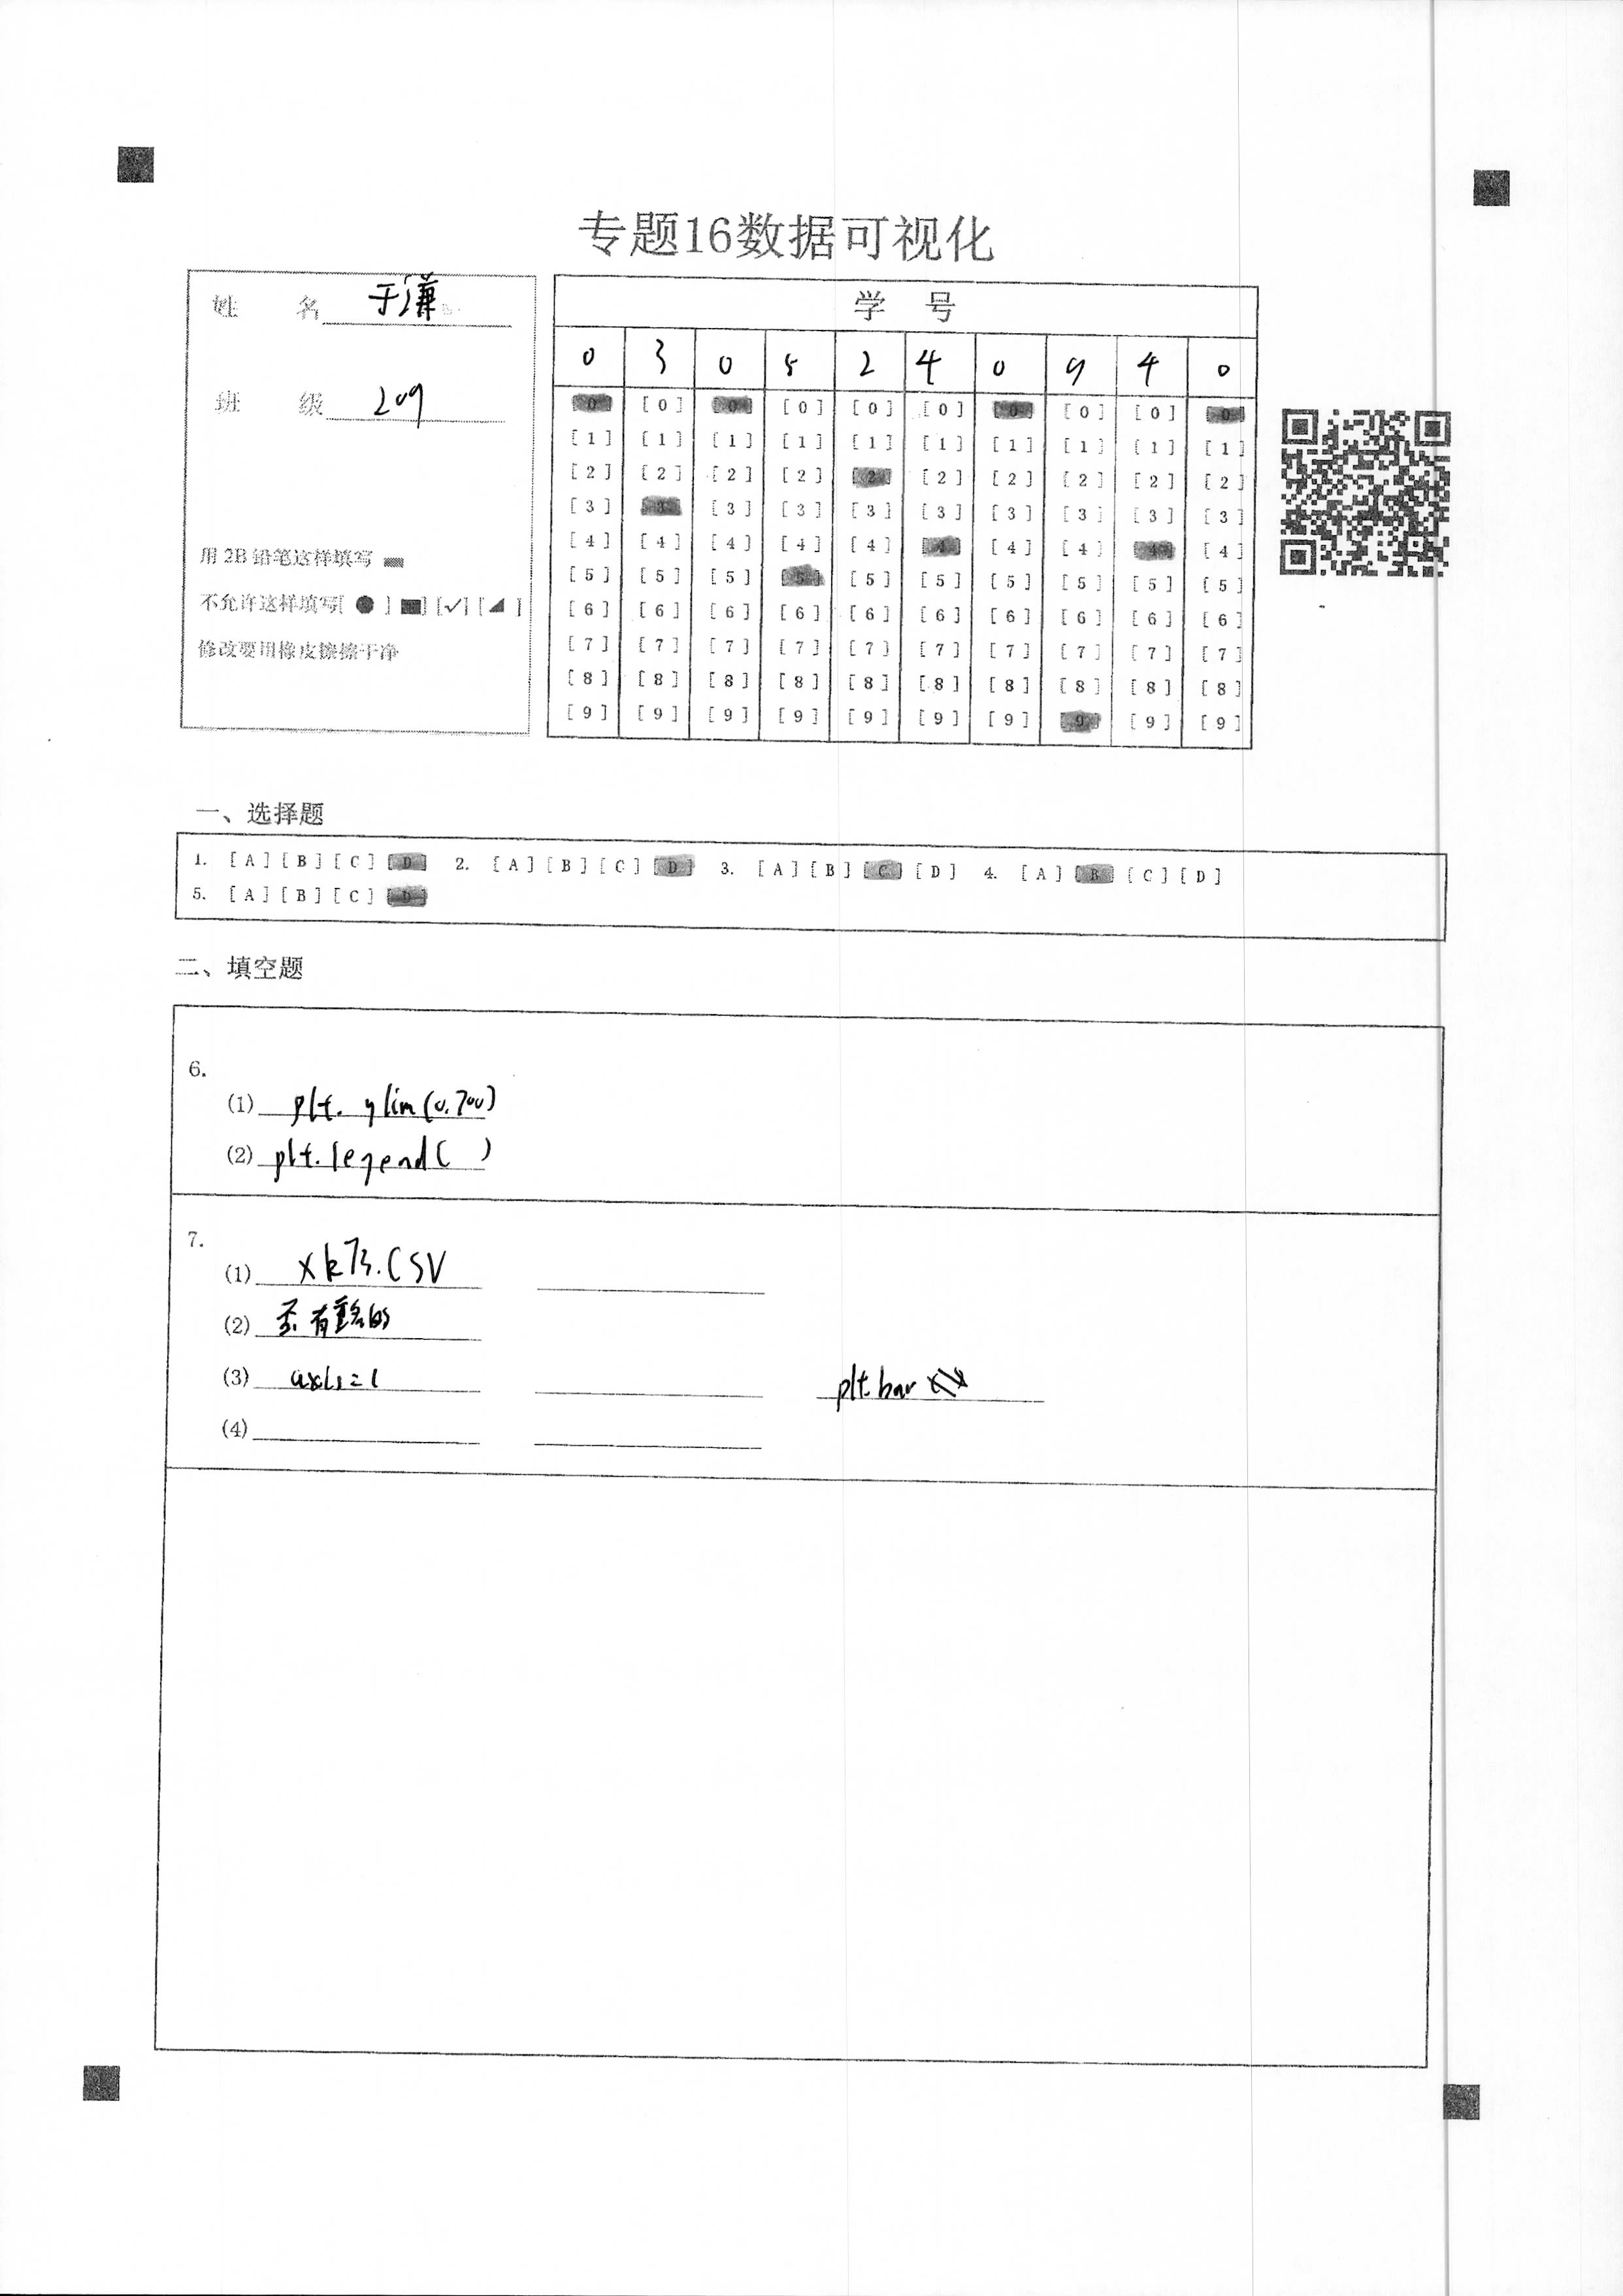 专题16数据可视化
姓 名 于谦
班 级 209
用2B铅笔这样填写
不允许这样填写[ ● ] ■] [✓] [◢ ]
修改要用橡皮擦擦干净
学 号
0 3 0 5 2 4 0 9 4 0
[0] [0] [0] [0] [0] [0] [0] [0] [0] [0]
[1] [1] [1] [1] [1] [1] [1] [1] [1] [1]
[2] [2] [2] [2] [2] [2] [2] [2] [2] [2]
[3] [3] [3] [3] [3] [3] [3] [3] [3] [3]
[4] [4] [4] [4] [4] [4] [4] [4] [4] [4]
[5] [5] [5] [5] [5] [5] [5] [5] [5] [5]
[6] [6] [6] [6] [6] [6] [6] [6] [6] [6]
[7] [7] [7] [7] [7] [7] [7] [7] [7] [7]
[8] [8] [8] [8] [8] [8] [8] [8] [8] [8]
[9] [9] [9] [9] [9] [9] [9] [9] [9] [9]
一、选择题
1. [A] [B] [C] [D] 2. [A] [B] [C] [D] 3. [A] [B] [C] [D] 4. [A] [B] [C] [D]
5. [A] [B] [C] [D]
二、填空题
6.
(1) plt. ylim(0.700)
(2) plt.legend( )
7.
(1) xk73.CSV
(2) 有重名的
(3) axis=1 plt.bar
(4)